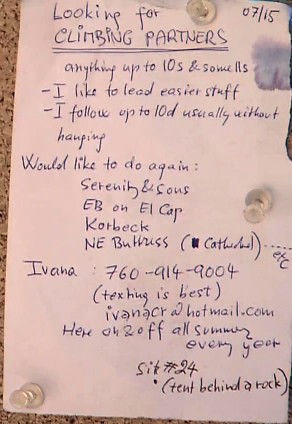 Looking for 07/15
CLIMBING PARTNERS
anything up to 10s & some 11s
- I like to lead easier stuff
- I follow up to 10d usually without
hanging
Would like to do again:
Serenity & Sons
EB on El Cap
Korbeck
NE Buttress (Cathedral) ---- etc
Ivana : 760-914-9004
(texting is best)
ivanacr@hotmail.com
Here on & off all summer
every year
Sit #24
(tent behind a rock)